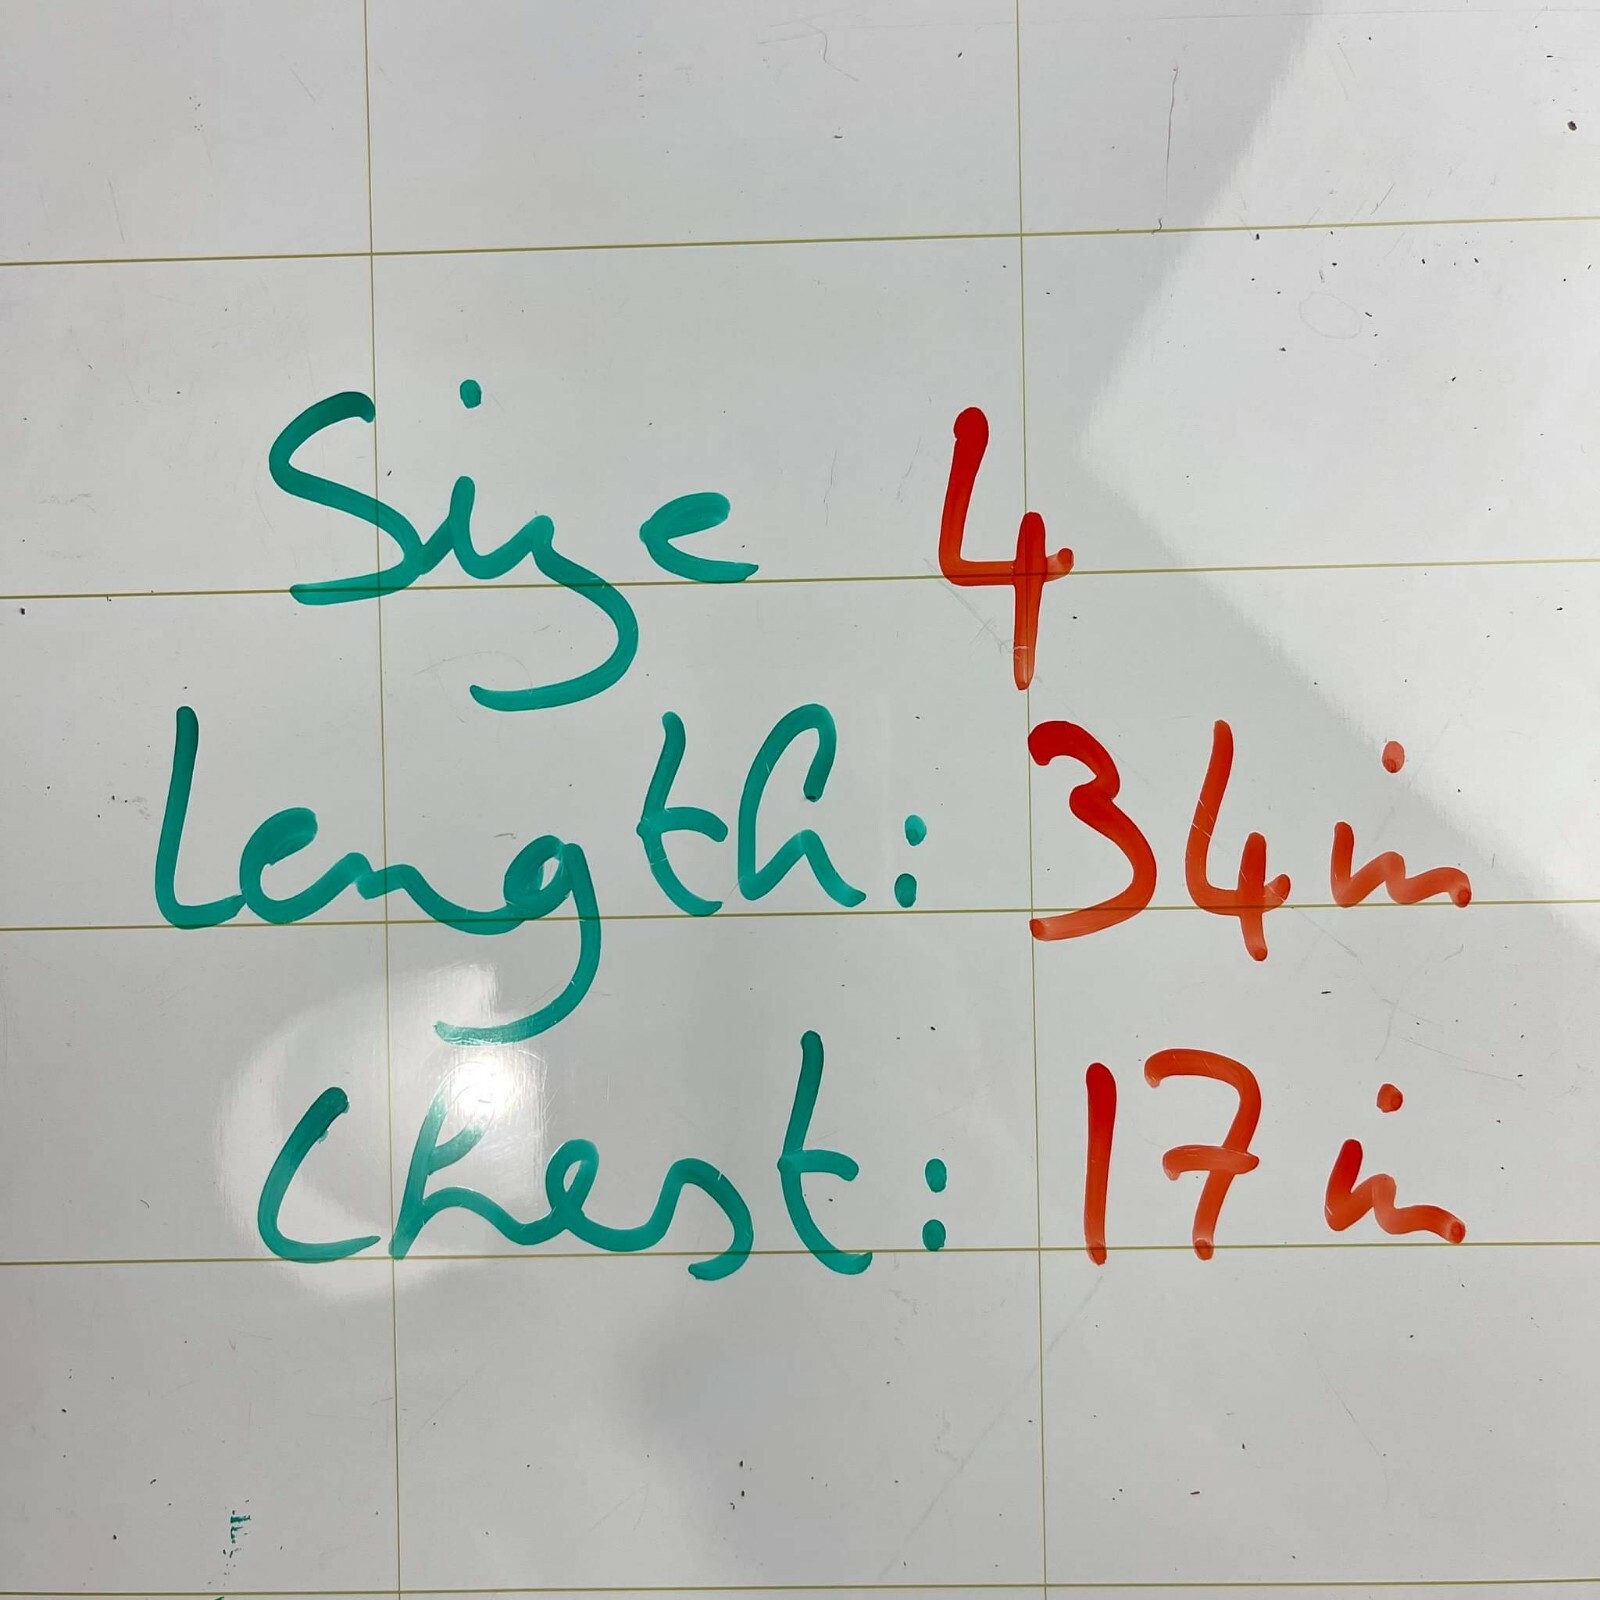 Size 4
Length: 34 in
Chest: 17 in